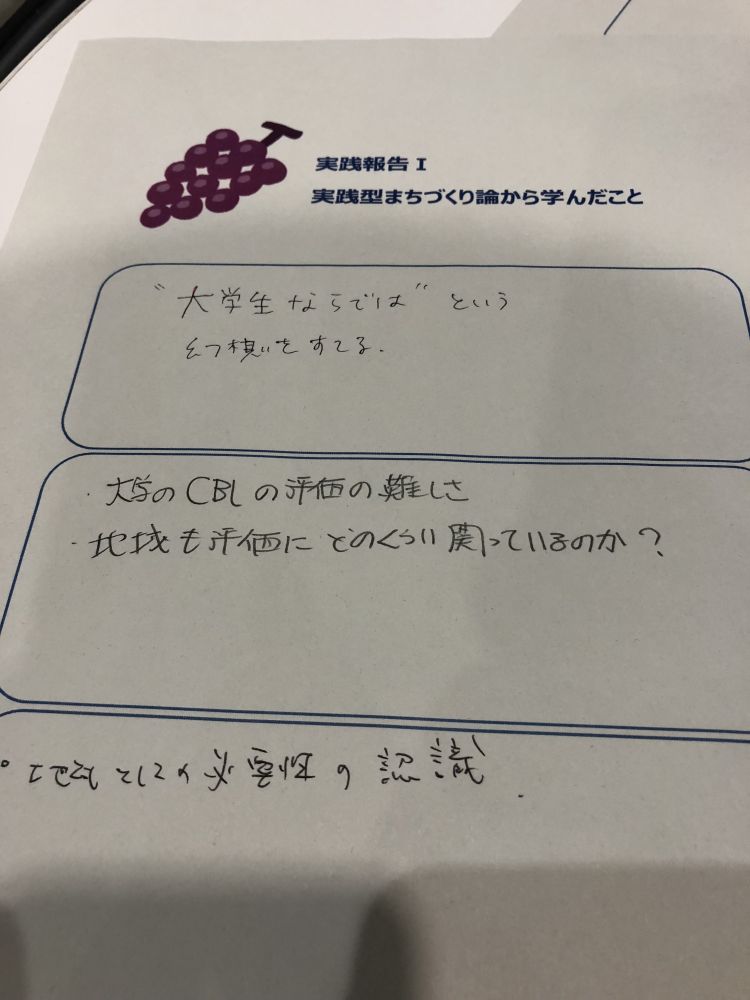 実践報告Ⅰ
実践型まちづくり論から学んだこと
"大学生ならでは" という
幻想をすてる.
・大学のCBLの評価の難しさ
・地域も評価にどのくらい関っているのか?
の必要性の認識